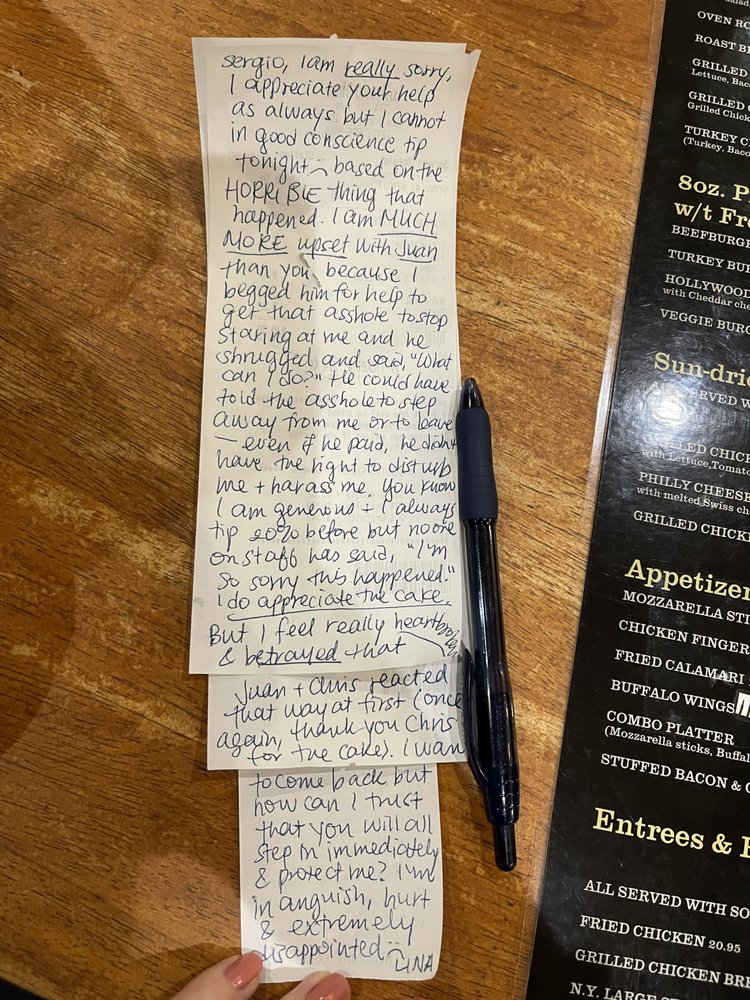 sergio, I am really sorry,
I appreciate your help
as always but I cannot
in good conscience tip
tonight :( based on the
HORRIBLE thing that
happened. I am MUCH
MORE upset with Juan
than you, because I
begged him for help to
get that asshole to stop
staring at me and he
shrugged and said, "What
can I do?" He could have
told the asshole to step
away from me or to leave
— even if he paid, he didn't
have the right to disturb
me + harass me. You know
I am generous + I always
tip 20% before but no one
on staff has said, "I'm
so sorry this happened."
I do appreciate the cake.
But I feel really heartbroken
& betrayed that
Juan + Chris reacted
that way at first (once
again, thank you Chris
for the cake). I want
to come back but
how can I trust
that you will all
step in immediately
& protect me? I'm
in anguish, hurt
& extremely
disappointed :(
LINA
OVEN RO
ROAST B
GRILLED
Lettuce, Bac
GRILLED C
Grilled Chick
TURKEY C
(Turkey, Baco
8oz. P
w/t Fre
BEEFBURGE
TURKEY BUR
HOLLYWOOD
with Cheddar che
VEGGIE BURG
Sun-drie
ALL SERVED W
LLED CHICK
with Lettuce, Tomato
PHILLY CHEESE
with melted Swiss ch
GRILLED CHICKE
Appetizer
MOZZARELLA STI
CHICKEN FINGER
FRIED CALAMARI
BUFFALO WINGS
COMBO PLATTER
(Mozzarella sticks, Buffal
STUFFED BACON & C
Entrees & B
ALL SERVED WITH SO
FRIED CHICKEN 20.95
GRILLED CHICKEN BRE
N.Y. LARGE S